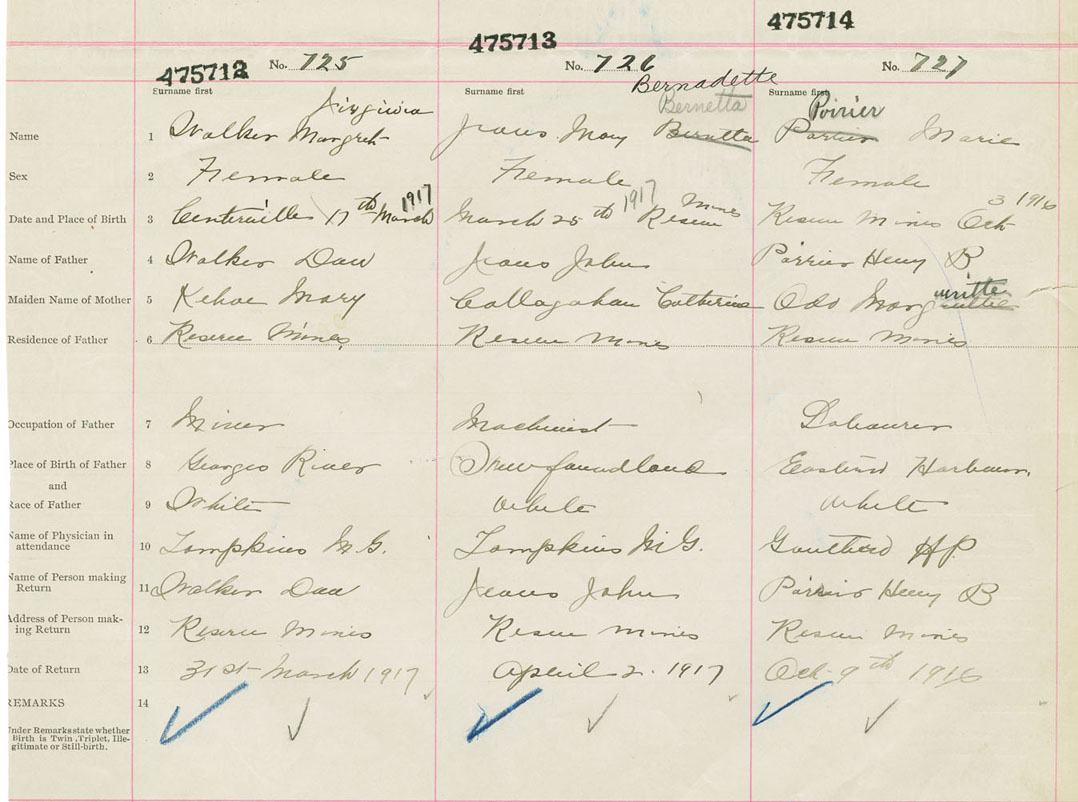 475712
475713
475714
No. 725
No. 726
No. 727
Surname first
Surname first
Surname first
Bernadette
Bernetta
Poirier
Name 1 Walker Margret
Mary Bernetta
Marie
Sex 2 Female
Female
Female
Date and Place of Birth 3 Centerville 17th March 1917
March 25th 1917 Reserve Mines
Reserve Mines Oct 3 1916
Name of Father 4 Walker Dan
John
Henry B
Maiden Name of Mother 5 Kehoe Mary
Callaghan Catherine
Residence of Father 6 Reserve Mines
Reserve Mines
Reserve Mines
Occupation of Father 7 Miner
Machinist
Place of Birth of Father 8 Georges River
Newfoundland
Harbour
and
Race of Father 9 White
White
White
Name of Physician in
attendance 10 Tompkins M.G.
Tompkins M.G.
H P.
Name of Person making
Return 11 Walker Dan
John
Henry B
Address of Person mak-
ing Return 12 Reserve Mines
Reserve Mines
Reserve Mines
Date of Return 13 31st March 1917
April 2. 1917
Oct 9th 1916
REMARKS 14
Under Remarks state whether
Birth is Twin, Triplet, Ille-
gitimate or Still-birth.